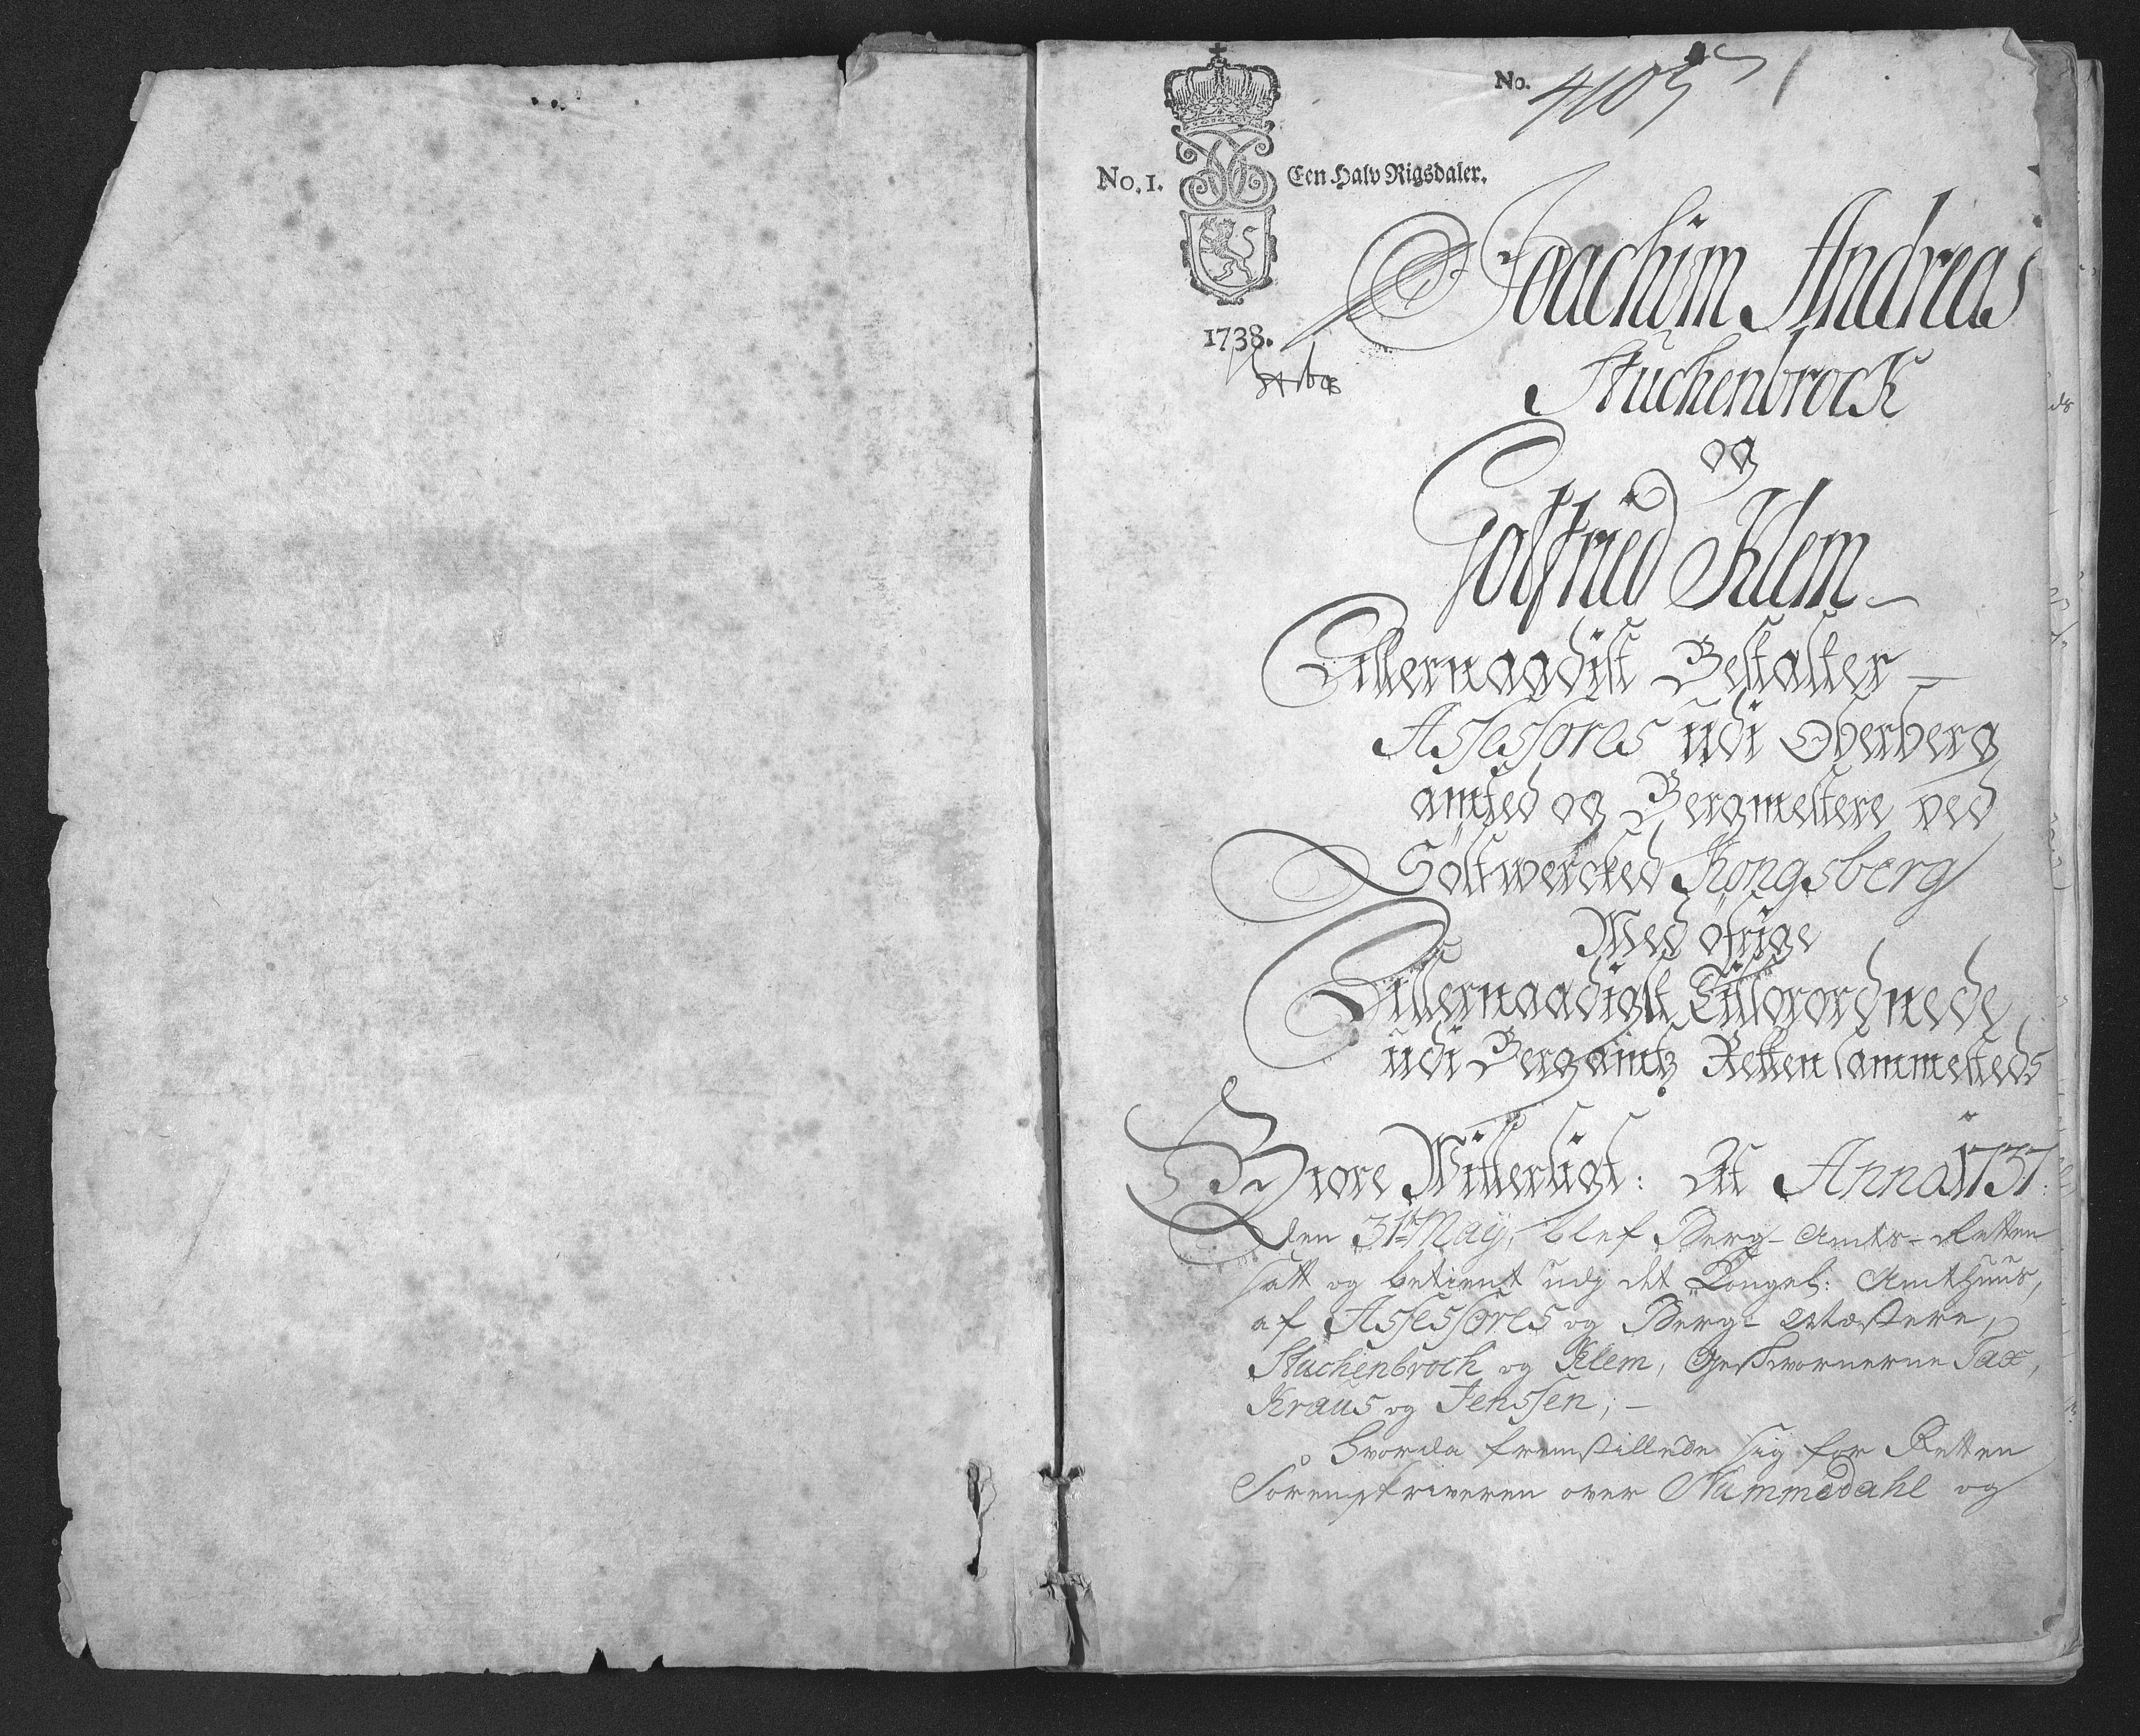 No. 4105
No. 1. Een Halv Rigsdaler.
1738.
Joachim Andreas
Stuckenbrock
og
Gotfried Klem
Allernaadist Bestalter
Assessores udi Oberberg
amted og Bergmestere ved
Söltwercked Kongsberg
Med öfrige
Allernaadigst Tilforordnede
udi Bergamtz Retten sammesteds
Giöre Witterligt: At Anno 1737.
den 31te Maij, blef Berg-Amts-Retten
satt og betient udj det Kongel: Amthuus,
af Assessores og Berg-Mæstere,
Stuckenbrock og Klem, Geschwornerne Tax,
Kraus og Jenssen;
hvorda fremstillede sig for Retten
Sorenskriveren over Nummedahl og